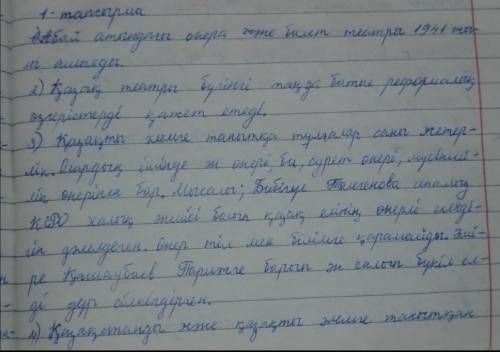 1 - тапсырма
1) Абай атындағы опера және балет театры 1941 жы-
лы ашылды.
2) Қазақ театры бүгінгі таңда батыл реформалық
өзгерістерді қажет етеді.
3) Қазақты әлемге танытқан тұлғалар саны жетер-
лік. Олардың ішінде ән өнері, би, сурет өнері, мүсінші-
лік өнерінен бар. Мысалы; Бибігүл Төлегенова апамыз
КСРО халық әншісі болып қазақ елінің өнерлі екенді-
гін дәлелдеген. Өнер тіл мен білімге қарамайды. Әмі-
ре Қашаубаев Парижге барып ән салып бүкіл ел-
ді дүр сілкіндірген.
4) Қазақстанды және қазақты әлемге танытқан